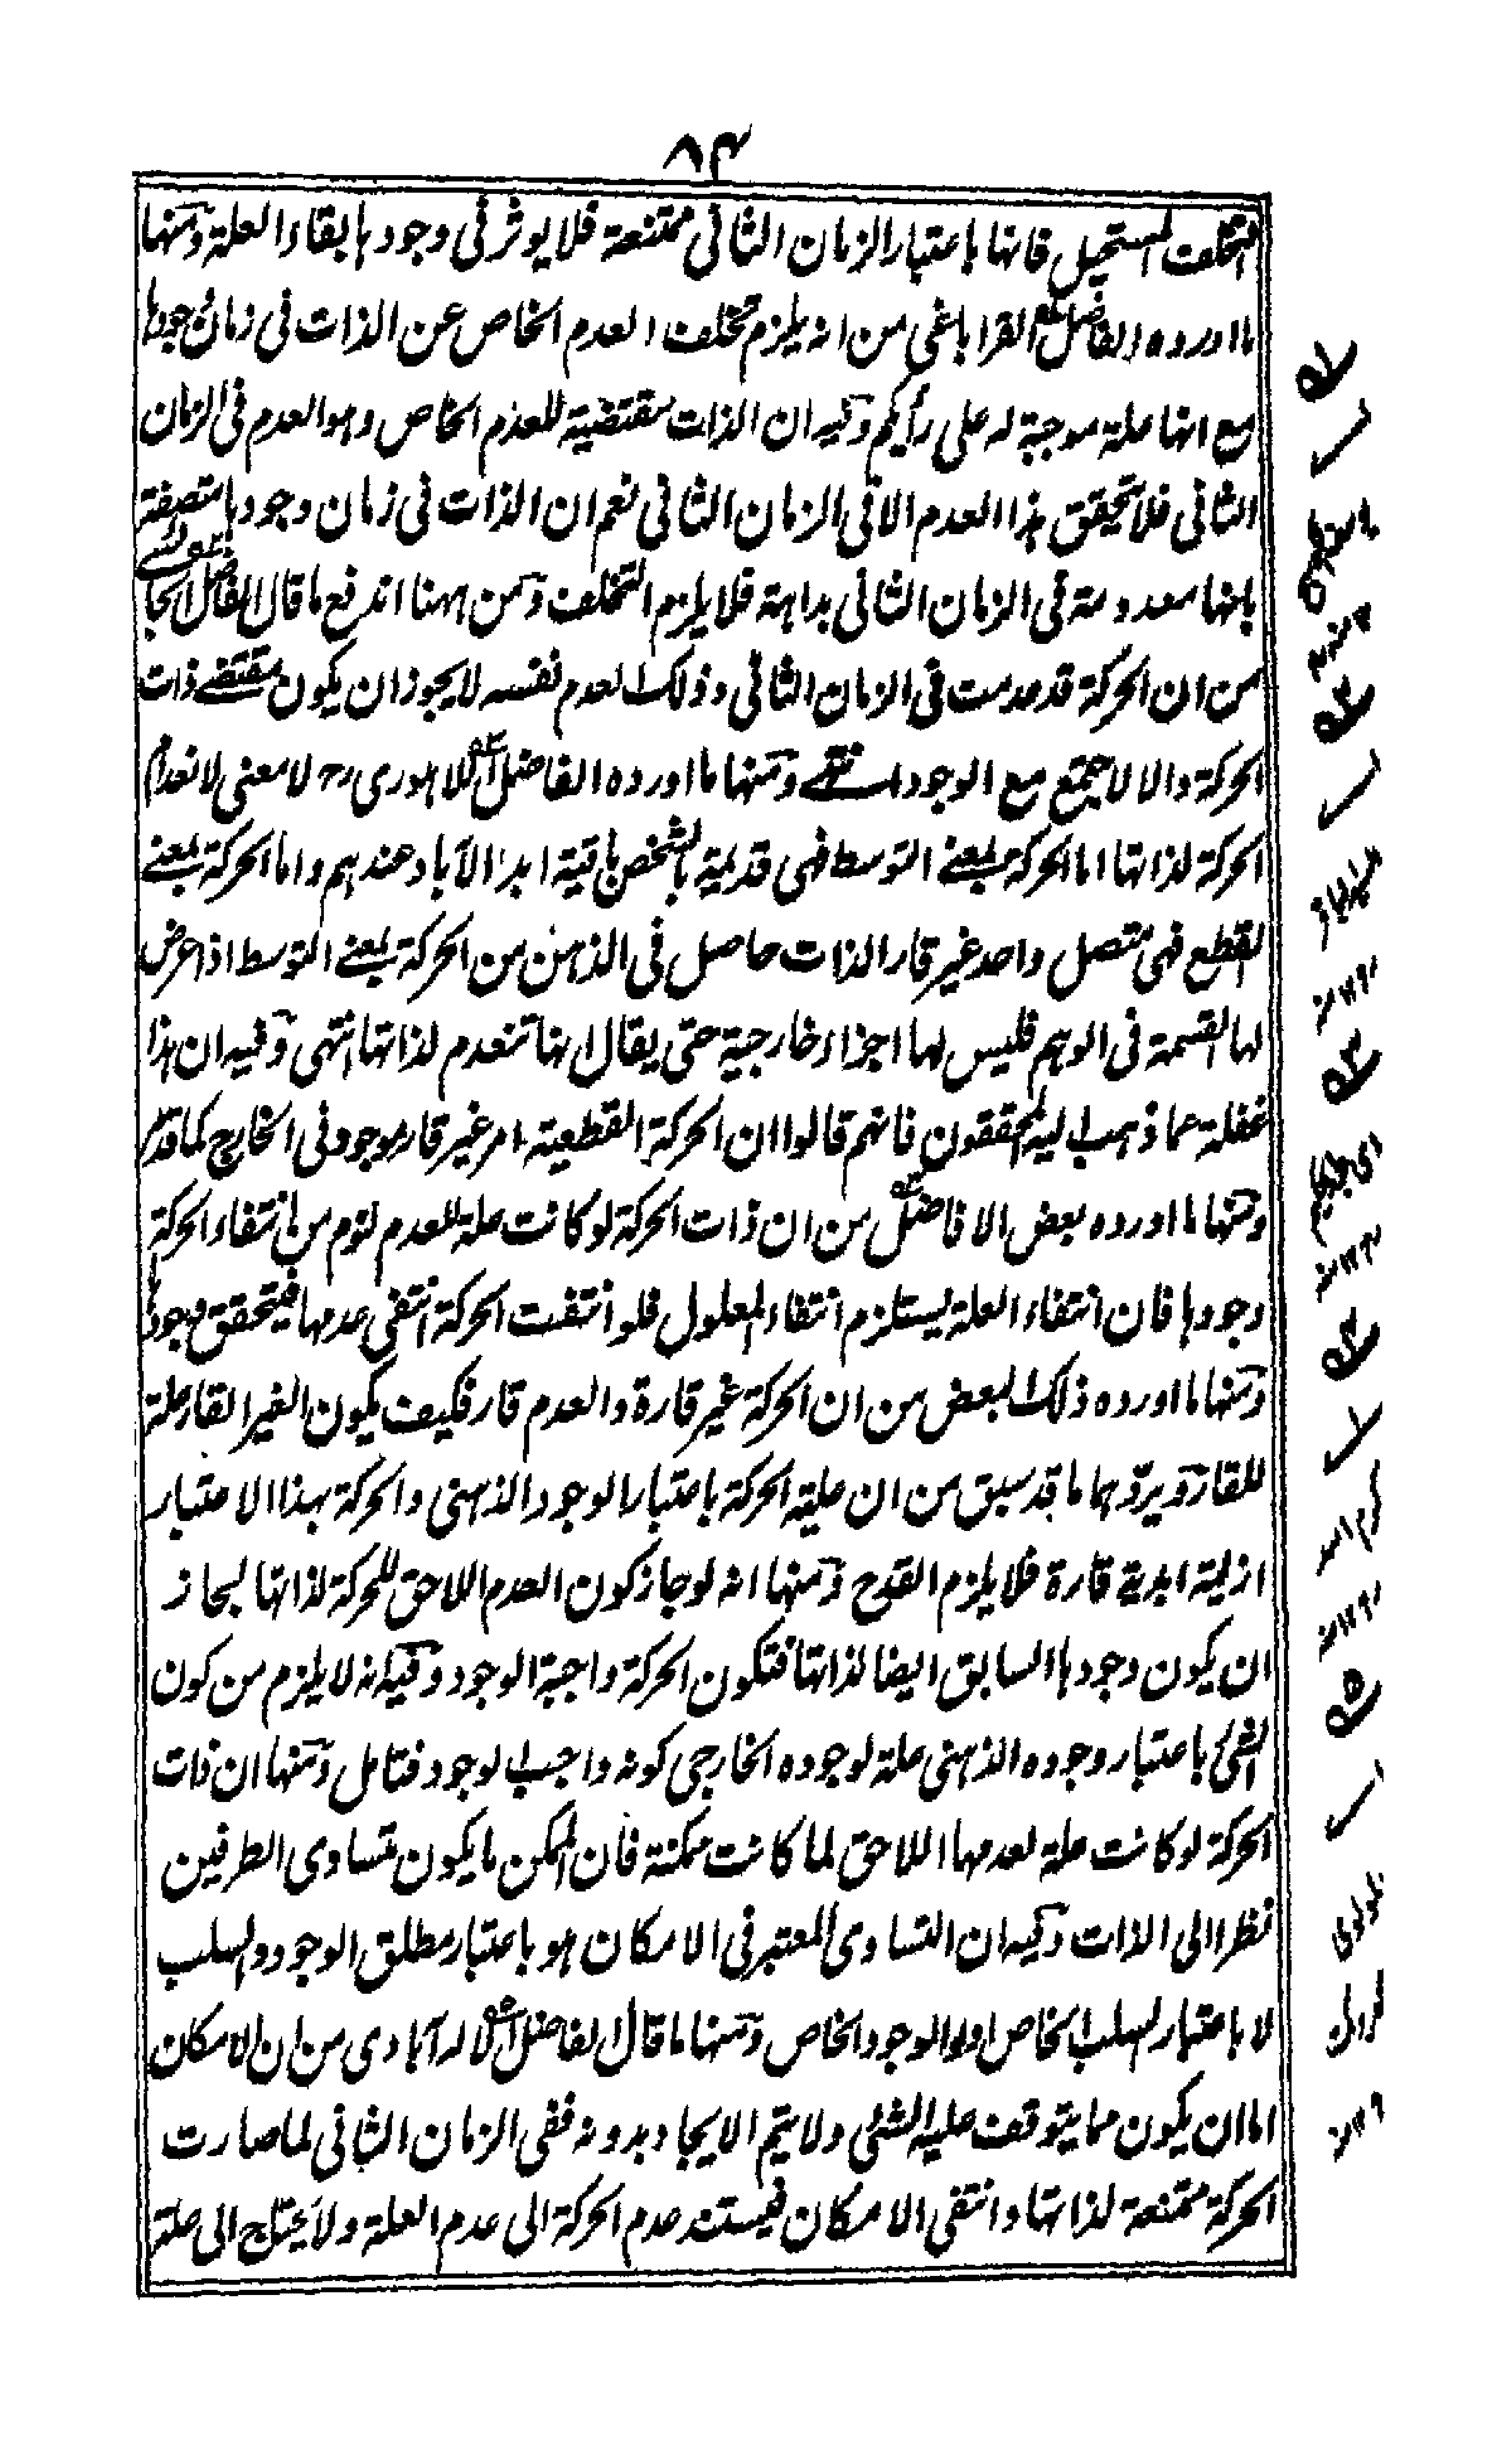 ٨٤
التخلف المستحيل فانها باعتبار الزمان الثانى ممتنعة فلا يوثر فى وجودها بقاء العلة ومنها
ما اورده الفاضل القراباغى من انه يلزم تخلف العدم الخاص عن الذات فى زمان وجودها
مع انها علة موجبة له على رأيكم وفيه ان الذات مقتضية للعدم الخاص وهو العدم فى الزمان
الثانى فلا يتحقق هذا العدم الا فى الزمان الثانى نعم ان الذات فى زمان وجودها متصفة
بانها معدومة فى الزمان الثانى بداهة فلا يلزم التخلف ومن ههنا اندفع ما قال الفاضل
من ان الحركة قد عدمت فى الزمان الثانى وذلك العدم نفسه لا يجوز ان يكون مقتضے ذات
الحركة والا لا جتمع مع الوجود انتهے ومنها ما اورده الفاضل اللاهورى رح لا معنى لانعدام
الحركة لذاتها اما الحركة بمعنے التوسط فهى قديمة بالشخص باقية ابد الآباد عندهم واما الحركة بمعنے
القطع فهى متصل واحد غير قار الذات حاصل فى الذهن من الحركة بمعنے التوسط اذا عرض
لها القسمة فى الوهم فليس لها اجزاء خارجية حتى يقال انها تنعدم لذاتها انتهى وفيه ان هذا
غفلة عما ذهب اليه المحققون فانهم قالوا ان الحركة القطعية امر غير قار موجود فى الخارج كما قد مر
ومنها ما اورده بعض الافاضل من ان ذات الحركة لو كانت علة للعدم لزم من انتفاء الحركة
وجودها فان انتفاء العلة يستلزم انتفاء المعلول فلو انتفت الحركة انتفى عدمها فيتحقق وجودها
ومنها ما اورده ذلك البعض من ان الحركة غير قارة والعدم قار فكيف يكون الغير القار علة
للقار ويردهما ما قد سبق من ان علية الحركة باعتبار الوجود الذهنى والحركة بهذا الاعتبار
ازلية ابدية قارة فلا يلزم القدح ومنها انه لو جاز كون العدم اللاحق للحركة لذاتها لجاز
ان يكون وجودها السابق ايضا لذاتها فتكون الحركة واجبة الوجود وفيه انه لا يلزم من كون
الشئ باعتبار وجوده الذهنى علة لوجوده الخارجى كونه واجب الوجود فتامل ومنها ان ذات
الحركة لو كانت علة لعدمها اللاحق لما كانت ممكنة فان الممكن ما يكون متساوى الطرفين
نظرا الى الذات وفيه ان التساوى المعتبر فى الامكان هو باعتبار مطلق الوجود والسلب
لا باعتبار السلب الخاص او الوجود الخاص ومنها ما قال الفاضل الاله آبادى من ان الامكان
اما ان يكون مما يتوقف عليه الشئ ولا يتم الايجاد بدونه ففى الزمان الثانى لما صارت
الحركة ممتنعة لذاتها وانتفى الامكان فيستند عدم الحركة الى عدم العلة ولا يحتاج الى علة